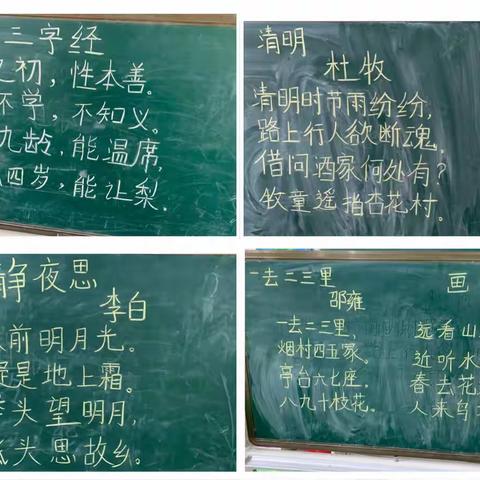 三字经
之初，性本善。
不学，不知义。
九龄，能温席，
四岁，能让梨。
清明
杜牧
清明时节雨纷纷，
路上行人欲断魂。
借问酒家何处有？
牧童遥指杏花村。
静夜思
李白
前明月光。
疑是地上霜。
头望明月，
低头思故乡。
一去二三里
邵雍
一去二三里，
烟村四五家。
亭台六七座。
八九十枝花。
画
远看山
近听水
春去花
人来鸟